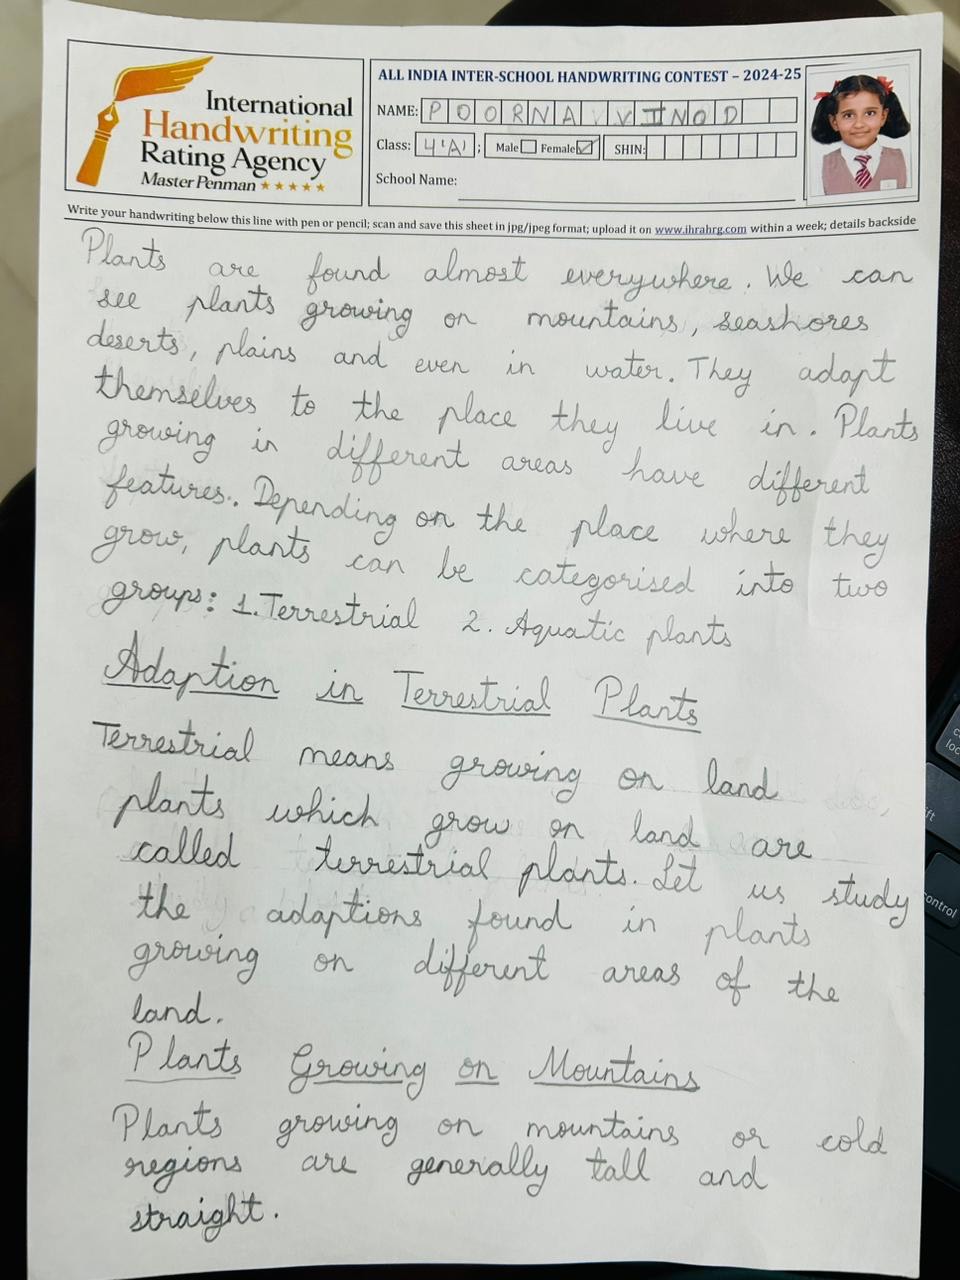 International
Handwriting
Rating Agency
Master Penman ★★★★★
ALL INDIA INTER-SCHOOL HANDWRITING CONTEST – 2024-25
NAME: POORNA VINOD
Class: 4'A' ; Male Female ✓ SHIN:
School Name:
Write your handwriting below this line with pen or pencil; scan and save this sheet in jpg/jpeg format; upload it on www.ihrahrg.com within a week; details backside
Plants are found almost everywhere. We can
see plants growing on mountains, seashores
deserts, plains and even in water. They adapt
themselves to the place they live in. Plants
growing in different areas have different
features.. Depending on the place where they
grow, plants can be categorised into two
groups: 1. Terrestrial 2. Aquatic plants
Adaption in Terrestrial Plants
Terrestrial means growing on land
plants which grow on land are
called terrestrial plants. Let us study
the adaptions found in plants
growing on different areas of the
land.
Plants Growing on Mountains
Plants growing on mountains or cold
regions are generally tall and
straight.
control